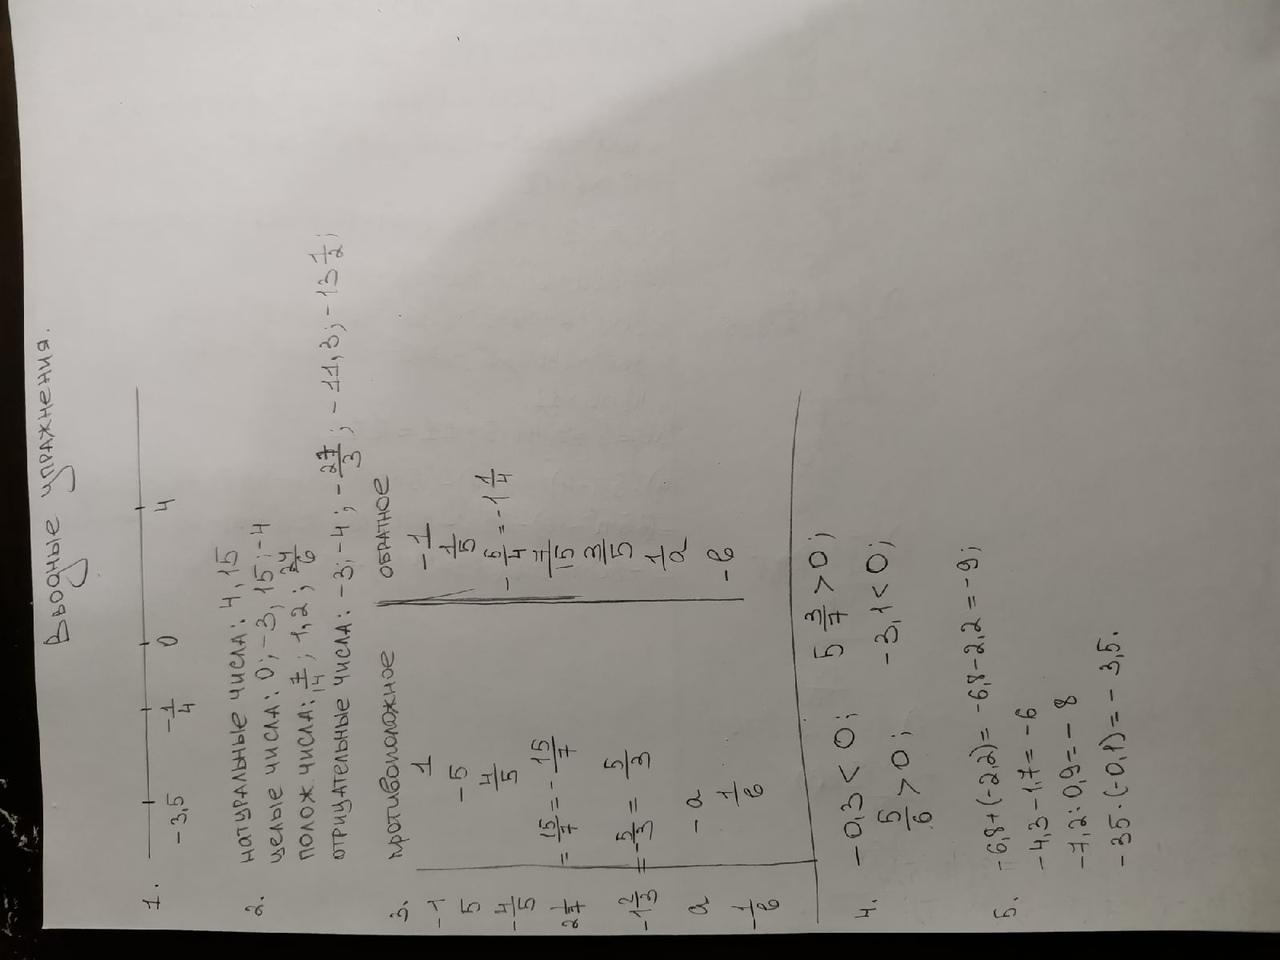 Вводные упражнения.
1.
-3,5 -1/4 0 4
2. натуральные числа: 4, 15
целые числа: 0; -3, 15; -4
полож числа: 7/14; 1,2; 24/6
отрицательные числа: -3; -4; -27/3; -11,3; -13 1/2;
3. противоположное обратное
-1 1 -1/1
5 -5 1/5
-4/5 4/5 -5/4 = -1 1/4
2 1/7 = 15/7 = -15/7 7/15
-1 2/3 = -5/3 = 5/3 3/5
a -a 1/a
-1/в 1/в -в
4. -0,3 < 0; 5 3/7 > 0;
5/6 > 0; -3,1 < 0;
5. -6,8 + (-2,2) = -6,8 - 2,2 = -9;
-4,3 - 1,7 = -6
-7,2 : 0,9 = -8
-35 · (-0,1) = -3,5.